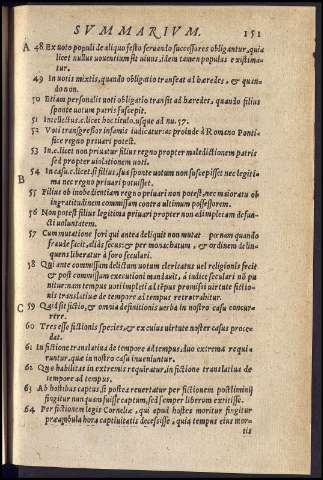 SVMMARIVM. 151
A 48 Ex uoto populi de aliquo festo seruando successores obligantur, quia
licet nullus uouentium sit uiuus, idem tamen populus existima-
tur.
49 In uotis mixtis, quando obligatio transeat ad hæredes, & quan-
do non.
50 Etiam personalis uoti obligatio transit ad hæredes, quando filius
sponte uotum patris suscepit.
51 Intellectus.c.licet.hoc titulo.usque ad nu.57.
52 Voti transgressor infamis iudicatur: ac proinde à Romano Ponti-
fice regno priuari potest.
53 In.c.licet.non priuatur filius regno propter maledictionem patris
sed propter uiolationem uoti.
B 54 In casu.c.licet.si filius, sua sponte uotum non suscepisset nec legiti-
ma nec regno priuari potuisset.
55 Filius ob inobedientiam regno priuari non potest, nec maioratu ob
ingratitudinem commissam contra ultimum possessorem.
56 Non potest filius legitima priuari propter non adimpletam defun-
cti uoluntatem.
57 Cum mutatione fori qui antea deliquit non mutat pœnam quando
fraude facit, aliàs secus: & per monachatum, & ordinem delin-
quens liberatur à foro seculari.
58 Qui ante commissum delictum uotum clericatus uel religionis fecit
& post commissum executioni mandauit, à iudice seculari nõ pu
nitur: nam tempus uoti impleti ad tẽpus promissi uirtute fictio-
nis translatiuæ de tempore ad tempus retrotrahitur.
C 59 Quid sit fictio, & omnia definitionis uerba in nostro casu concur-
rere.
60 Tres esse fictionis species, & ex cuius uirtute noster casus proce-
dat.
61 In fictione translatiua de tempore ad tempus, duo extrema requi-
runtur, quæ in nostro casu inueniuntur.
62 Quæ habilitas in extremis requiratur, in fictione translatiua de
tempore ad tempus.
63 Ab hostibus captus, si postea reuertatur per fictionem postliminij
fingitur nunquam fuisse captum, sed semper liberum extitisse.
64 Per fictionem legis Corneliæ, qui apud hostes moritur fingitur
præambula hora captiuitatis decessisse, quia tempus eius mor-
tis